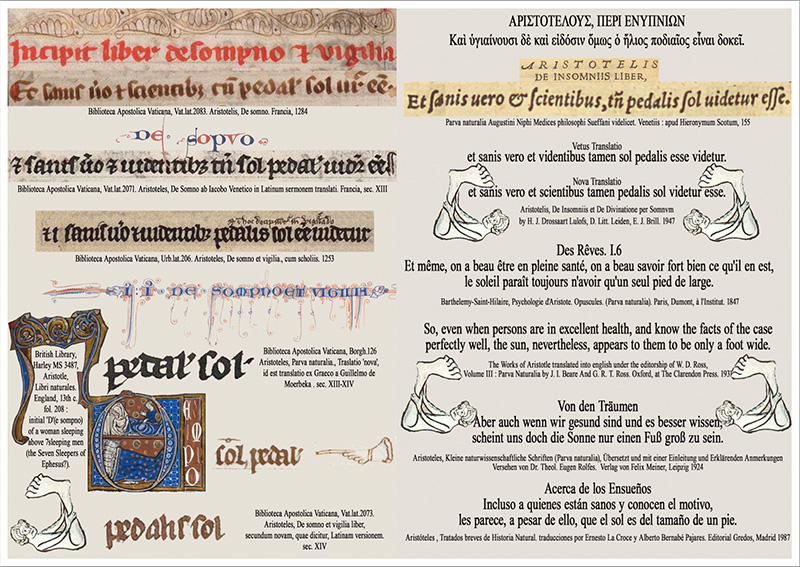 Incipit liber de sompno ⁊ vigilia
Et sanis ũo ⁊ scientibꝫ tñ pedal' sol
Biblioteca Apostolica Vaticana, Vat.lat.2083. Aristotelis, De somno. Francia, 1284
DE SOPVO
⁊ sanis ũo ⁊ uidentibꝫ tñ sol pedal'
Biblioteca Apostolica Vaticana, Vat.lat.2071. Aristoteles, De Somno ab Iacobo Venetico in Latinum sermonem translati. Francia, sec. XIII
⁊ sanis ũo ⁊ uidentibꝫ pedalis sol eē uidetur
Biblioteca Apostolica Vaticana, Urb.lat.206. Aristoteles, De somno et vigilia., cum scholiis. 1253
DE SOMPNO ET VIGILIA
British Library,
Harley MS 3487,
Aristotle,
Libri naturales.
England, 13th c.
fol. 208 :
initial 'D'(e sompno)
of a woman sleeping
above ?sleeping men
(the Seven Sleepers of
Ephesus?).
pedal' sol·
Biblioteca Apostolica Vaticana, Borgh.126
Aristoteles, Parva naturalia., Traslatio 'nova',
id est translatio ex Graeco a Guillelmo de
Moerbeka . sec. XIII-XIV
sol, pedal'
pedalis sol
Biblioteca Apostolica Vaticana, Vat.lat.2073.
Aristoteles, De somno et vigilia liber,
secundum novam, quae dicitur, Latinam versionem.
sec. XIV
ΑΡΙΣΤΟΤΕΛΟΥΣ, ΠΕΡΙ ΕΝΥΠΝΙΩΝ
Καὶ ὑγιαίνουσι δὲ καὶ εἰδόσιν ὅμως ὁ ἥλιος ποδιαῖος εἶναι δοκεῖ.
ARISTOTELIS
DE INSOMNIIS LIBER,
Et sanis uero & scientibus, tñ pedalis sol uidetur esse.
Parva naturalia Augustini Niphi Medices philosophi Sueffani videlicet. Venetiis : apud Hieronymum Scotum, 155
Vetus Translatio
et sanis vero et videntibus tamen sol pedalis esse videtur.
Nova Translatio
et sanis vero et scientibus tamen pedalis sol videtur esse.
Aristotelis, De Insomniis et De Divinatione per Somnvm
by H. J. Drossaart Lulofs, D. Litt. Leiden, E. J. Brill. 1947
Des Rêves. I.6
Et même, on a beau être en pleine santé, on a beau savoir fort bien ce qu'il en est,
le soleil paraît toujours n'avoir qu'un seul pied de large.
Barthelemy-Saint-Hilaire, Psychologie d'Aristote. Opuscules. (Parva naturalia). Paris, Dumont, à l'Institut. 1847
So, even when persons are in excellent health, and know the facts of the case
perfectly well, the sun, nevertheless, appears to them to be only a foot wide.
The Works of Aristotle translated into english under the editorship of W. D. Ross,
Volume III : Parva Naturalia by J. I. Beare And G. R. T. Ross. Oxford, at The Clarendon Press.
Von den Träumen
Aber auch wenn wir gesund sind und es besser wissen,
scheint uns doch die Sonne nur einen Fuß groß zu sein.
Aristoteles, Kleine naturwissenschaftliche Schriften (Parva naturalia), Übersetzt und mit einer Einleitung und Erklärenden Anmerkungen
Versehen von Dr. Theol. Eugen Rolfes. Verlag von Felix Meiner, Leipzig 1924
Acerca de los Ensueños
Incluso a quienes están sanos y conocen el motivo,
les parece, a pesar de ello, que el sol es del tamaño de un pie.
Aristóteles , Tratados breves de Historia Natural. traducciones por Ernesto La Croce y Alberto Bernabé Pajares. Editorial Gredos, Madrid 1987